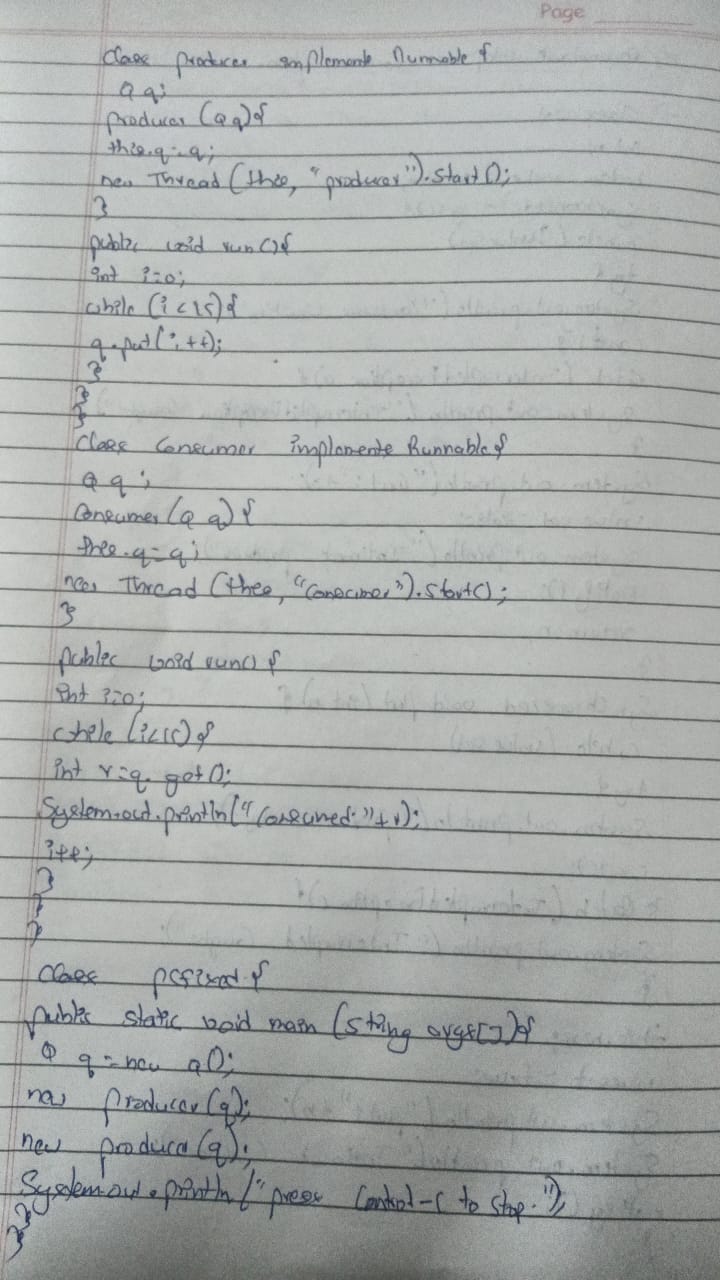 Page
Class producer implements Runnable {
Q q;
producer (Q q) {
this.q = q;
new Thread (this, "producer").start ();
}
public void run () {
int i=0;
while (i<15) {
q.put (i++);
}
}
}
Class Consumer implements Runnable {
Q q;
Consumer (Q q) {
this.q = q;
new Thread (this, "Consumer").start();
}
public void run() {
int i=0;
while (i<15) {
int r=q.get ();
System.out.println ("Consumed:"+r);
i++;
}
}
}
class pcfixed {
public static void main (string args[]) {
Q q = new Q();
new Producer (q);
new produce (q);
System.out.println ("press Control-C to stop.");
}
}